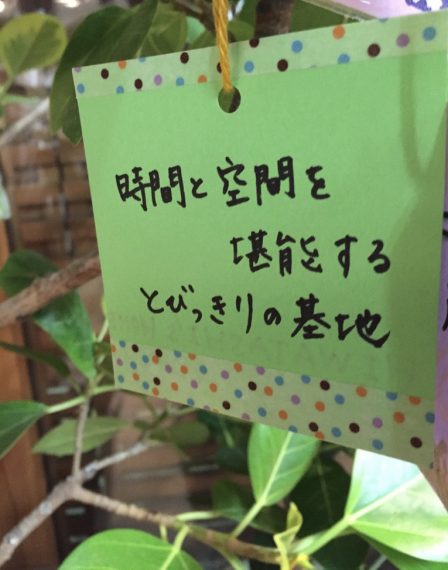 時間と空間を
堪能する
とびっきりの基地